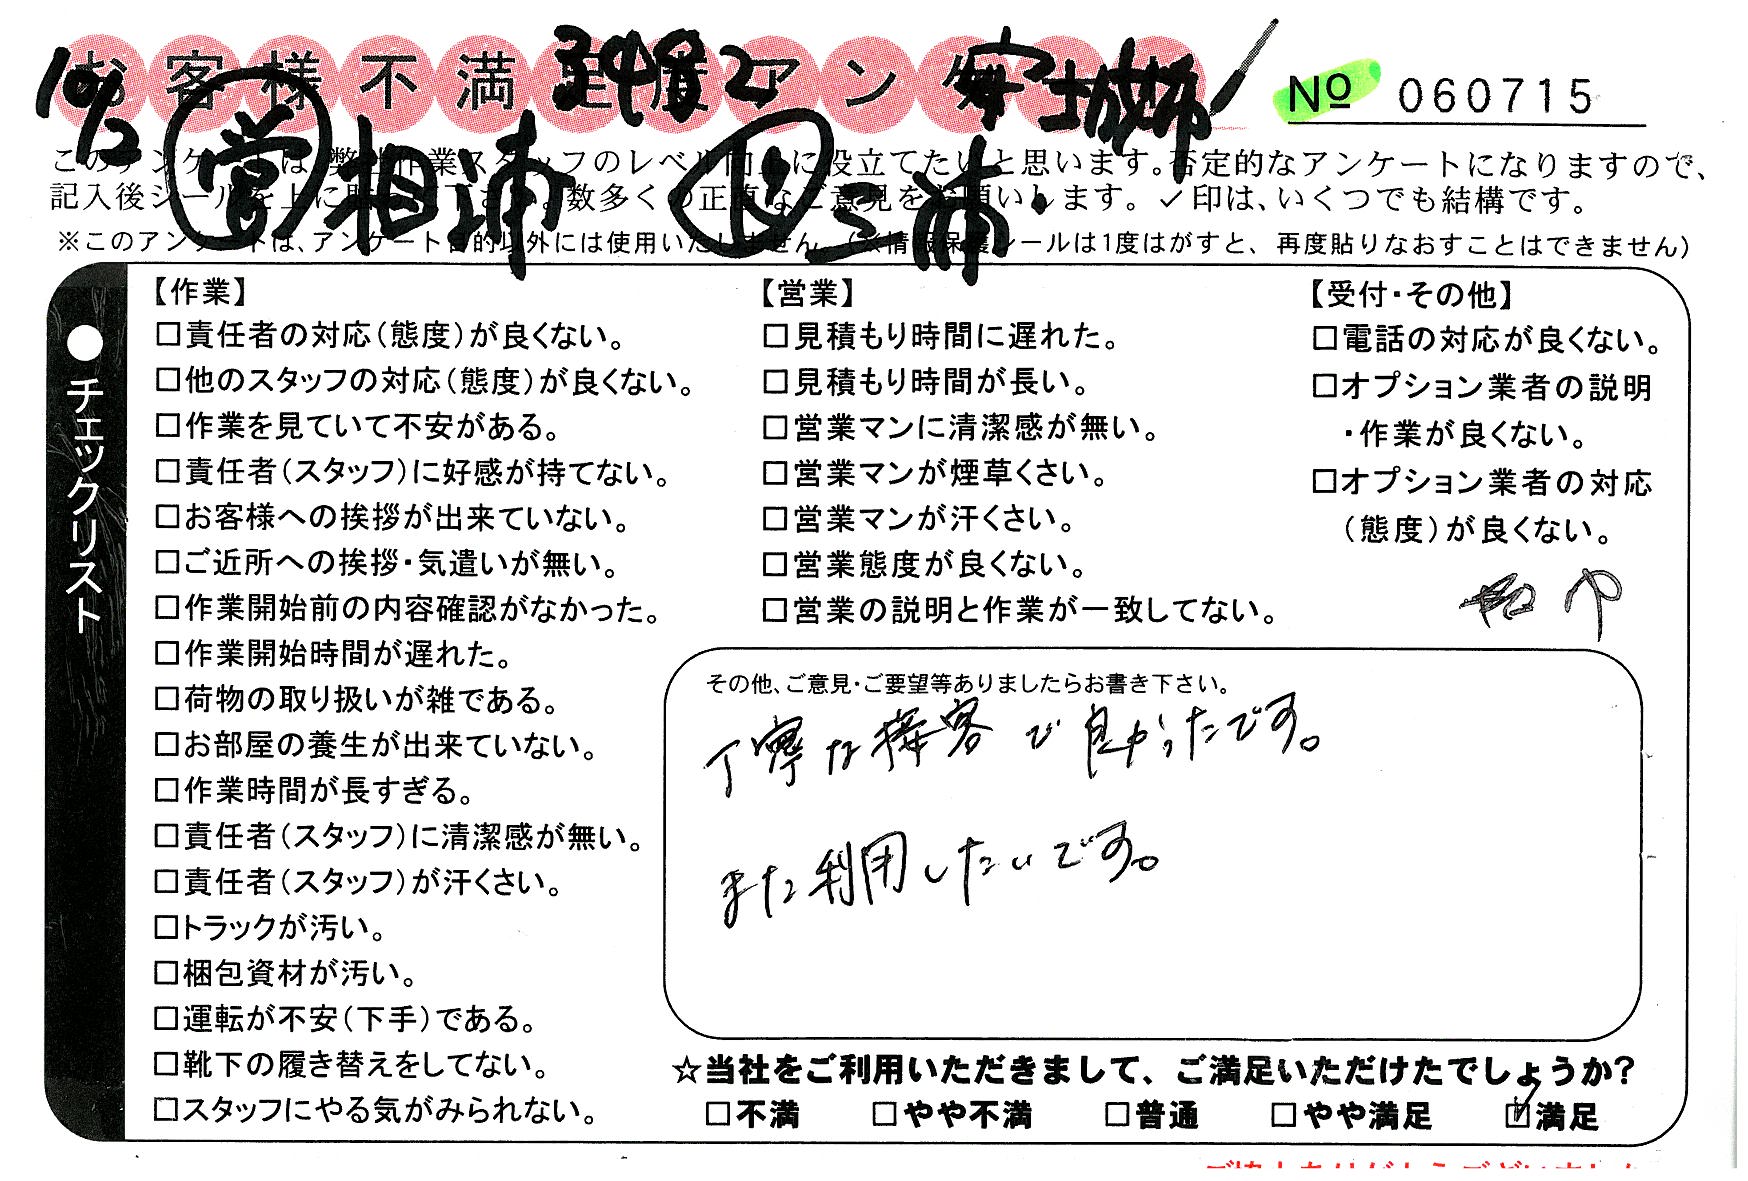 10/2 お客様不満足度アンケート 3482 安城 姉
No 060715
営 相浦 リ 三浦
このアンケートは、弊社作業スタッフのレベル向上に役立てたいと思います。否定的なアンケートになりますので、
記入後シールを上に貼って下さい。数多くの正直なご意見をお願いします。✓印は、いくつでも結構です。
※このアンケートは、アンケート目的以外には使用いたしません。(※情報保護シールは1度はがすと、再度貼りなおすことはできません)
●チェックリスト
【作業】
□責任者の対応(態度)が良くない。
□他のスタッフの対応(態度)が良くない。
□作業を見ていて不安がある。
□責任者(スタッフ)に好感が持てない。
□お客様への挨拶が出来ていない。
□ご近所への挨拶・気遣いが無い。
□作業開始前の内容確認がなかった。
□作業開始時間が遅れた。
□荷物の取り扱いが雑である。
□お部屋の養生が出来ていない。
□作業時間が長すぎる。
□責任者(スタッフ)に清潔感が無い。
□責任者(スタッフ)が汗くさい。
□トラックが汚い。
□梱包資材が汚い。
□運転が不安(下手)である。
□靴下の履き替えをしてない。
□スタッフにやる気がみられない。
【営業】
□見積もり時間に遅れた。
□見積もり時間が長い。
□営業マンに清潔感が無い。
□営業マンが煙草くさい。
□営業マンが汗くさい。
□営業態度が良くない。
□営業の説明と作業が一致してない。
【受付・その他】
□電話の対応が良くない。
□オプション業者の説明
・作業が良くない。
□オプション業者の対応
(態度)が良くない。
その他、ご意見・ご要望等ありましたらお書き下さい。
丁寧な接客で良かったです。
また利用したいです。
☆当社をご利用いただきまして、ご満足いただけたでしょうか?
□不満 □やや不満 □普通 □やや満足 ☑満足
ご協力ありがとうございました